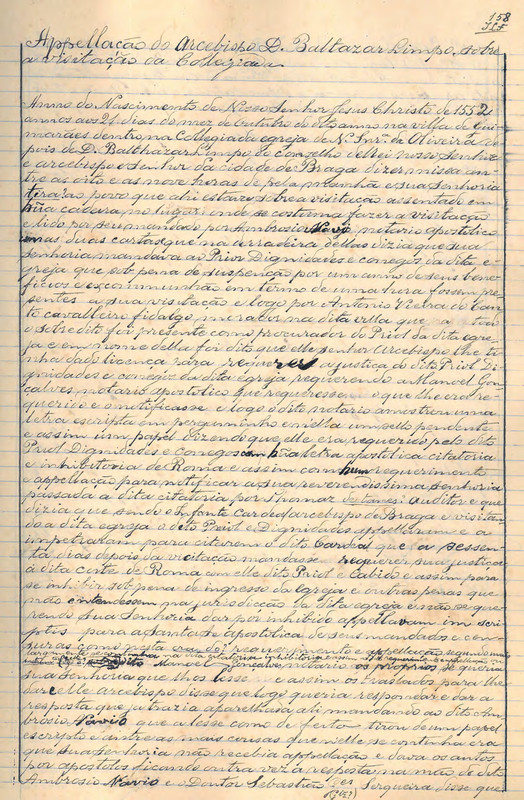 158
Appellação do Arcebispo D. Baltazar Limpo, sobre
a visitação da Collegiada
Anno do Nascimento de Nosso Senhor Jesus Christo de 1552
annos aos 21 dias do mez de Outubro do dito anno na villa de Gui-
marães dentro na Collegiada egreja de N. Snr.ª da Oliveira de-
pois de D. Balthazar Limpo do conselho del rei nosso Senhor
e arcebispo e senhor da cidade de Braga dizer missa an-
tre as oito e as nove horas de pela manhã e sua Senhoria
tirar ao povo que ahi estava sobre a visitação assentado em
hũa cadeira no lugar onde se costuma fazer a visitação
e lido por seu mandado por Ambrosio Navio notario apostolico
umas duas cartas que na derradeira dellas dizia que sua
Senhoria mandava ao Prior Dignidades e conegos da dita e-
greja que sob pena de suspenção por um anno de seus bene-
ficios e excommunhão em termo de uma hora fossem pre-
sentes a sua visitação e logo por Antonio Vieira do Can-
to cavalleiro fidalgo morador na dita villa que a todo
o sobredito foi presente como procurador do Priol da dita egre-
ja e em nome della foi dito que elle senhor Arcebispo lhe ti-
nha dado licença para requerer a justiça do dito Priol Di-
gnidades e conegos da dita egreja requerendo a Manoel Gon-
çalves notario apostolico que requeresse o que lhe era re-
querido e o notificasse e logo o dito notario amostrou uma
letra escripta em pergaminho e nella um sello pendente
e assim um papel dizendo que elle era requerido pelo dito
Priol Dignidades e conegos com hũa letra apostolica citatoria
e inhibitoria de Roma e assim com hum requerimento
e appellação para notificar a sua reverendissima senhoria
passada a dita citatoria por Thomaz auditor e que
dizia que sendo o Infante Cardeal arcebispo de Braga e visitan-
do a dita egreja o dito Priol e Dignidades appellaram e a
impetraram para citarem o dito Cardeal que a sessen-
ta dias depois da visitação mandasse requerer sua justiça
á dita corte de Roma com elle dito Priol e Cabido e assim para
se inhibir sob pena de ingresso da Egreja e outras penas que
não entendessem na jurisdicção da dita egreja e não se que-
rendo sua Senhoria dar por inhibido appellavam in scri-
ptis para a Santa Sé apostolica de seus mandados e cen-
suras como nesta requerimento e appellação
dito Manoel Gonçalves notario os proprios
sua Senhoria que lhos lesse e assim os traslados para lhe
dar e elle arcebispo disse que logo queria responder e dar a
resposta que já trazia aparelhada ali mandando ao dito Am-
brosio Navio que a lesse como de feito tirou de um papel
escripto e entre as mais cousas que nelle se continha era
que sua Senhoria não recebia appellação e dava os autos
por apostolos ficando outra vez a resposta na mão do dito
Ambrosio Navio e o Doutor Sebastião Serqueira disse que